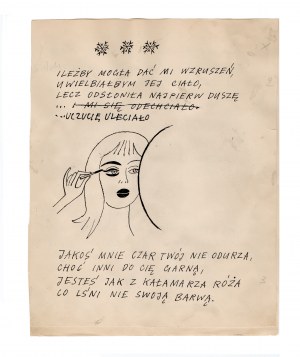 ILEŻBY MOGŁA DAĆ MI WZRUSZEŃ,
UWIELBIAŁBYM JEJ CIAŁO,
LECZ ODSŁONIŁA NAJPIERW DUSZĘ
... I MI SIĘ ODECHCIAŁO.
...UCZUCIE ULECIAŁO
JAKOŚ MNIE CZAR TWÓJ NIE ODURZA,
CHOĆ INNI DO CIĘ GARNĄ,
JESTEŚ JAK Z KAŁAMARZA RÓŻA
CO LŚNI NIE SWOJĄ BARWĄ.